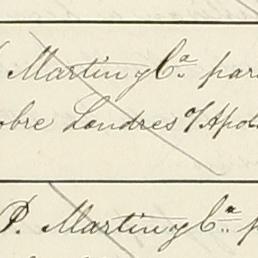 Martin y Cª. par
obre Londres o/ Apol
P. Martin y Cª. p